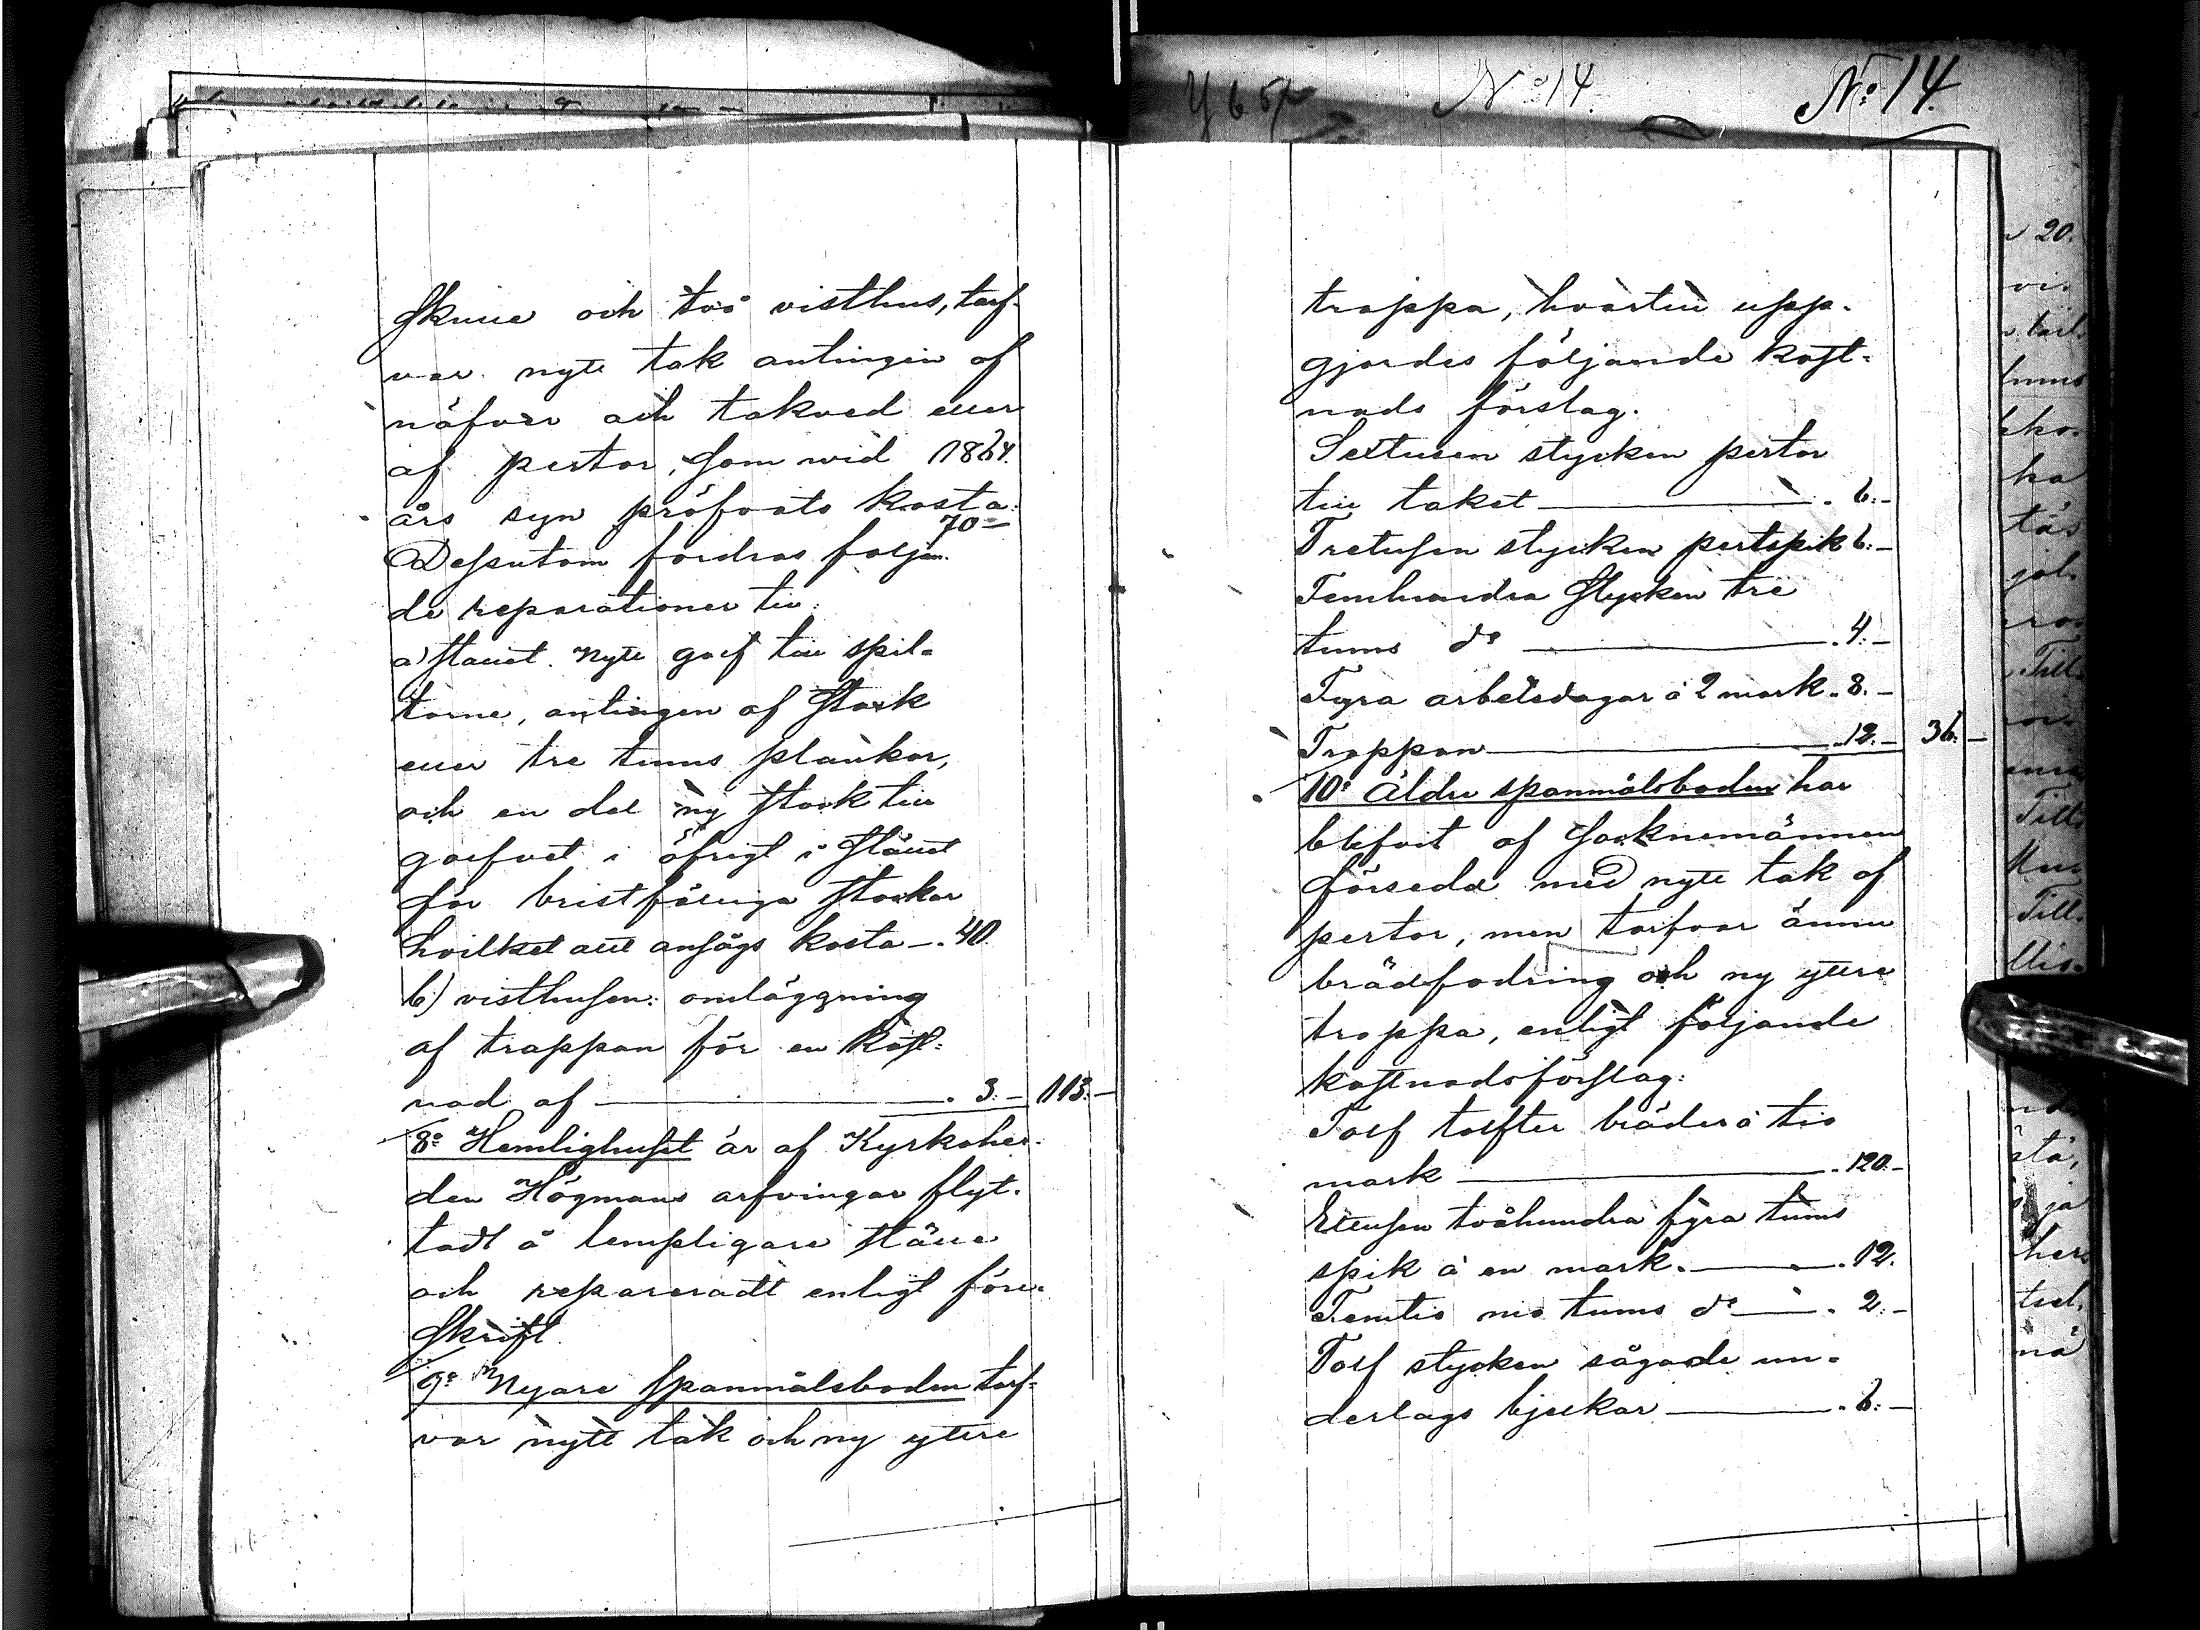 skulle och två visthus, tarf-
var nytt tak antingen af
näfver och takved eller
af pertor, som wid 1864.
års syn pröfvats kosta:
70 –
Dessutom fordras följan-
de reparationer till:
a) stallet. Nytt golf till spil-
torne, antingen af stock
eller tre tums plankor,
och en del ny stock till
golfvet i öfrigt i stället
för bristfälliga stockar
hvilket allt ansågs kosta –. 40.
b) visthusen: omläggning
af trappan för en kost-
nad af — . 3. – 113. –
8:o Hemlighuset är af Kyrkoher-
den Högmans arfvingar flyt-
tadt å lempligare ställe
och repareradt enligt före-
skrift.
9:o Nyare spanmålsboden tarf-
var nytt tak och ny yttre
No 14 No 14.
trappa, hvartill upp-
gjordes följande kost-
nads förslag.
Sextusen stycken pertor
till taket — . 6. –
Tretusen stycken pertspik 6. –
Femhundra stycken tre
tums d:o — . 4. –
Fyra arbetsdagar à 2 mark . 8. –
Trappan — . 12. – 36. –
10:o Äldre spanmålsboden har
blifvit af Socknemännen
försedd med nytt tak af
pertor, men tarfvar ännu
brädfodring och ny yttre
trappa, enligt följande
kostnadsförslag:
Tolf tolfter bräder à tio
mark — . 120. –
Ettusen tvåhundra fyra tums
spik à en mark. — . 12.
Femtio nio tums d:o — . 2. –
Tolf stycken sågade un-
derlags bjelkar — . 6. –
20.